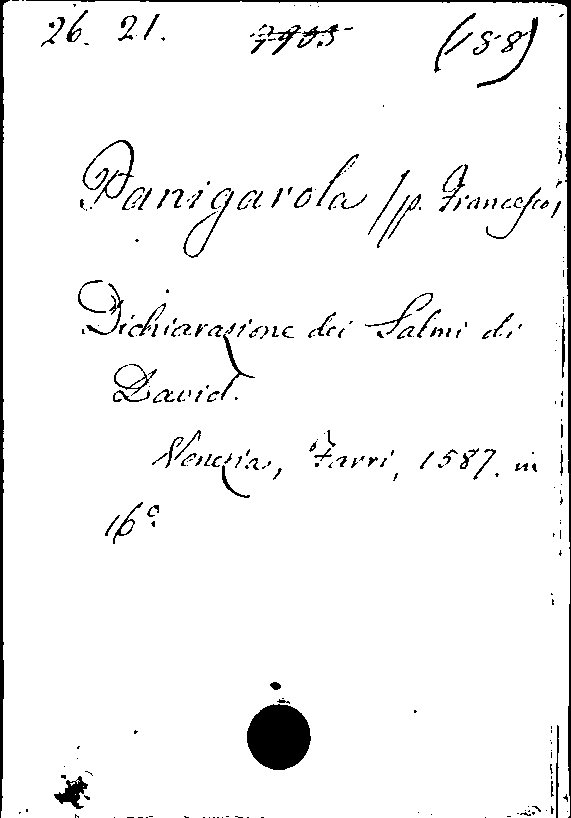 26. 21. 7903 (188)
Panigarola (p. Francesco)
Dichiarazione dei Salmi di
David.
Venezia, Farri, 1587. in
16º